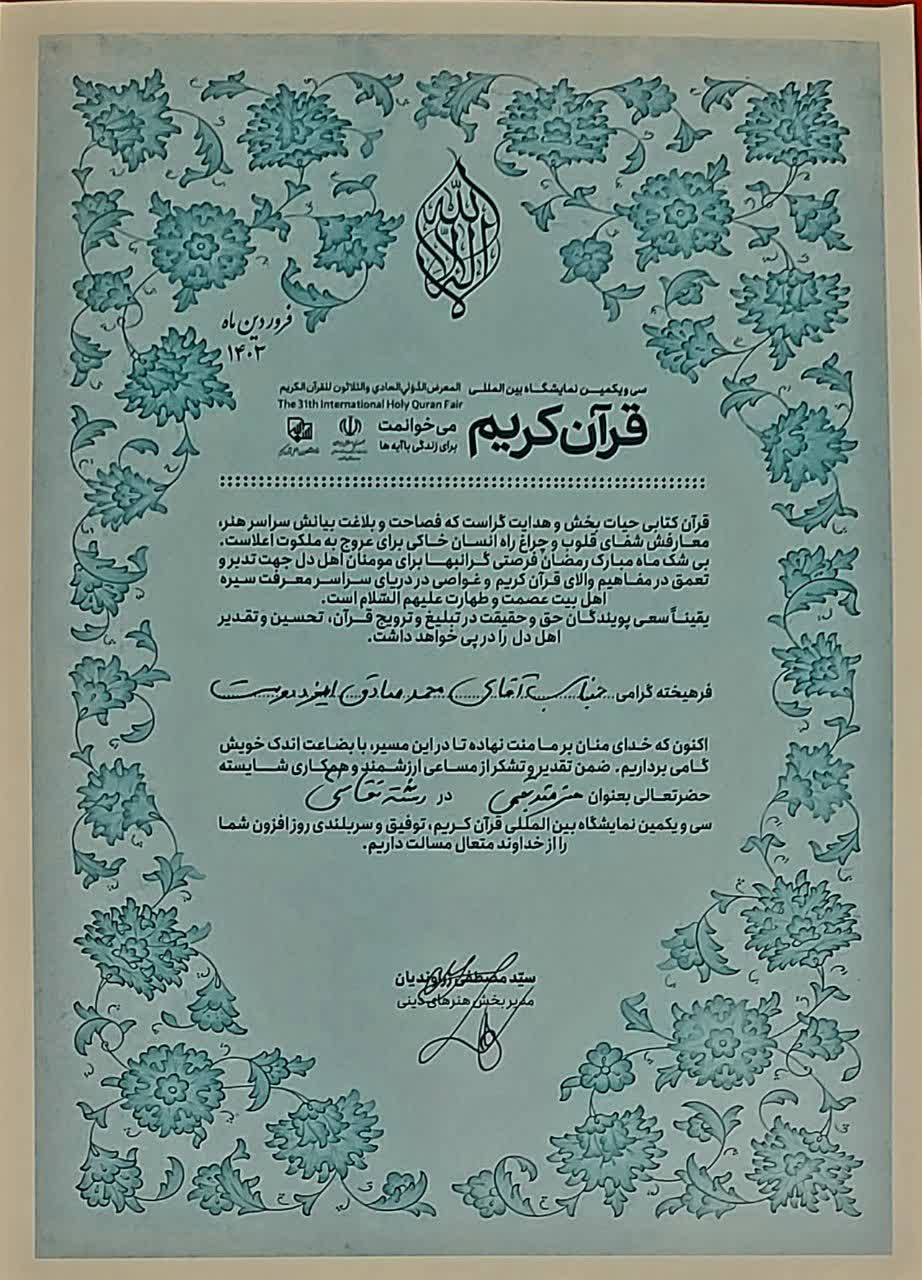 لا اله الا الله
فروردین ماه
۱۴۰۳
سی و یکمین نمایشگاه بین المللی
المعرض الدولی الحادی والثلاثون للقرآن الکریم
The 31th International Holy Quran Fair
قرآن کریم
می‌خوانمت
برای زندگی با آیه ها
قرآن کتابی حیات بخش و هدایت گراست که فصاحت و بلاغت بیانش سراسر هنر،
معارفش شفای قلوب و چراغ راه انسان خاکی برای عروج به ملکوت اعلاست.
بی شک ماه مبارک رمضان فرصتی گرانبها برای مومنان اهل دل جهت تدبر و
تعمق در مفاهیم والای قرآن کریم و غواصی در دریای سراسر معرفت سیره
اهل بیت عصمت و طهارت علیهم السّلام است.
یقیناً سعی پویندگان حق و حقیقت در تبلیغ و ترویج قرآن، تحسین و تقدیر
اهل دل را در پی خواهد داشت.
فرهیخته گرامی جناب آقای محمد صادق
اکنون که خدای منان بر ما منت نهاده تا در این مسیر، با بضاعت اندک خویش
گامی برداریم. ضمن تقدیر و تشکر از مساعی ارزشمند و همکاری شایسته
حضرتعالی بعنوان هنرمند تجسمی در رشته نقاشی
سی و یکمین نمایشگاه بین المللی قرآن کریم، توفیق و سربلندی روز افزون شما
را از خداوند متعال مسالت داریم.
سیّد مصطفی راوندیان
مدیر بخش هنرهای دینی